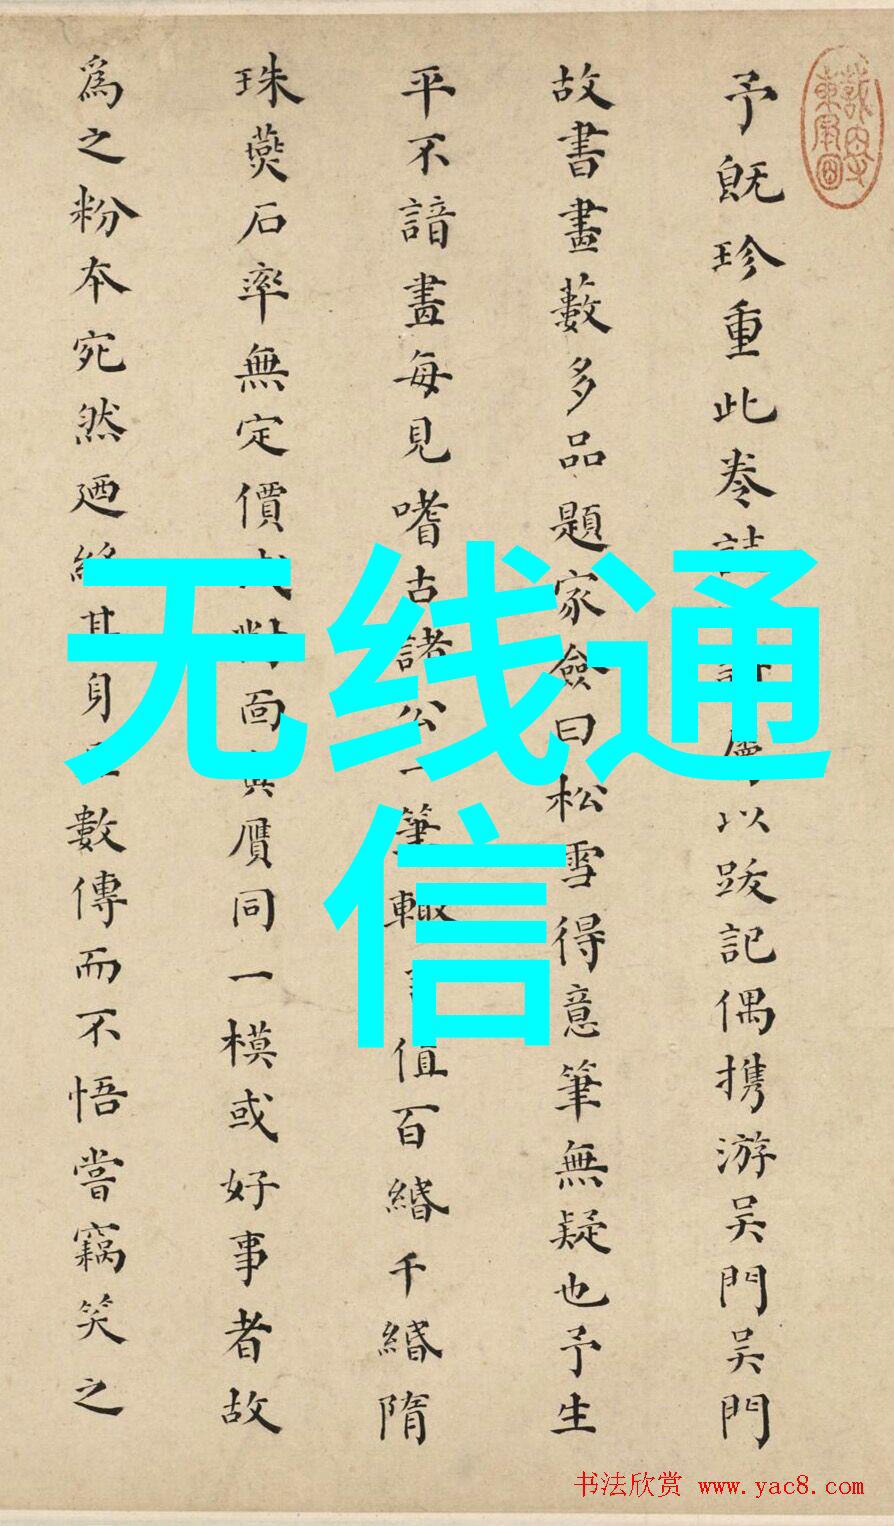 予既珍重此卷以跋記偶携游吳門吳門
故書畫藪多品題家僉曰松雪得意筆無疑也予生
平不諳畫每見嗜古諸公一筆輙值百緡千緡隋
珠燕石率無定價對面贋同一模或好事者故
為之粉本宛然廼其身數傳而不悟嘗竊笑之
无线通
信
书法欣赏 www.yac8.com